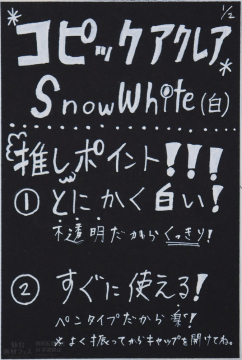 1/2
コピックアクレア
Snow White (白)
推しポイント!!!
① とにかく白い!
不透明だからくっきり!
② すぐに使える!
ペンタイプだから楽!
※よく振ってからキャップを開けてね。